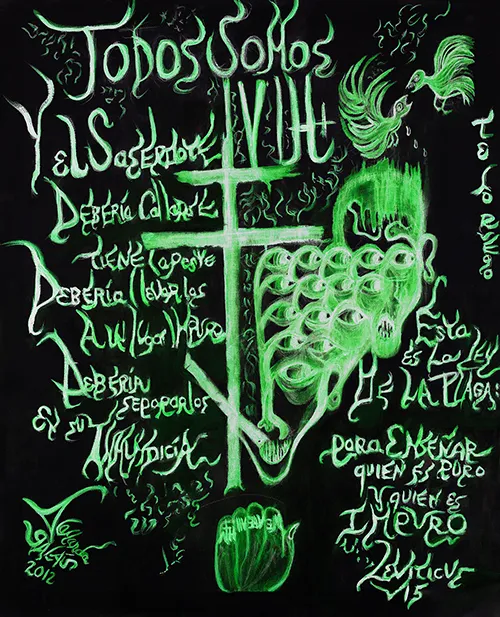 TODOS SOMOS
VIH+
Y el Sacerdote
DEBERÍA Callarse
TIENE la peste
DEBERÍA llevarlos
A un lugar IMPURO
DEBERÍA separarlos
EN su INMUNDICIA
2012
ESTA
ES LA LEY
DE LA PLAGA:
PARA ENSEÑAR
QUIEN ES PURO
Y QUIEN ES
IMPURO
LEVITICUS
15